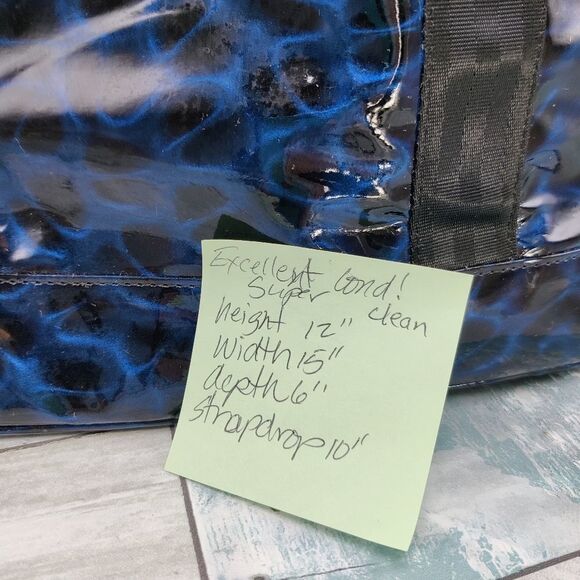 Excellent Cond!
Super clean
height 12"
Width 15"
depth 6"
Strapdrop 10"